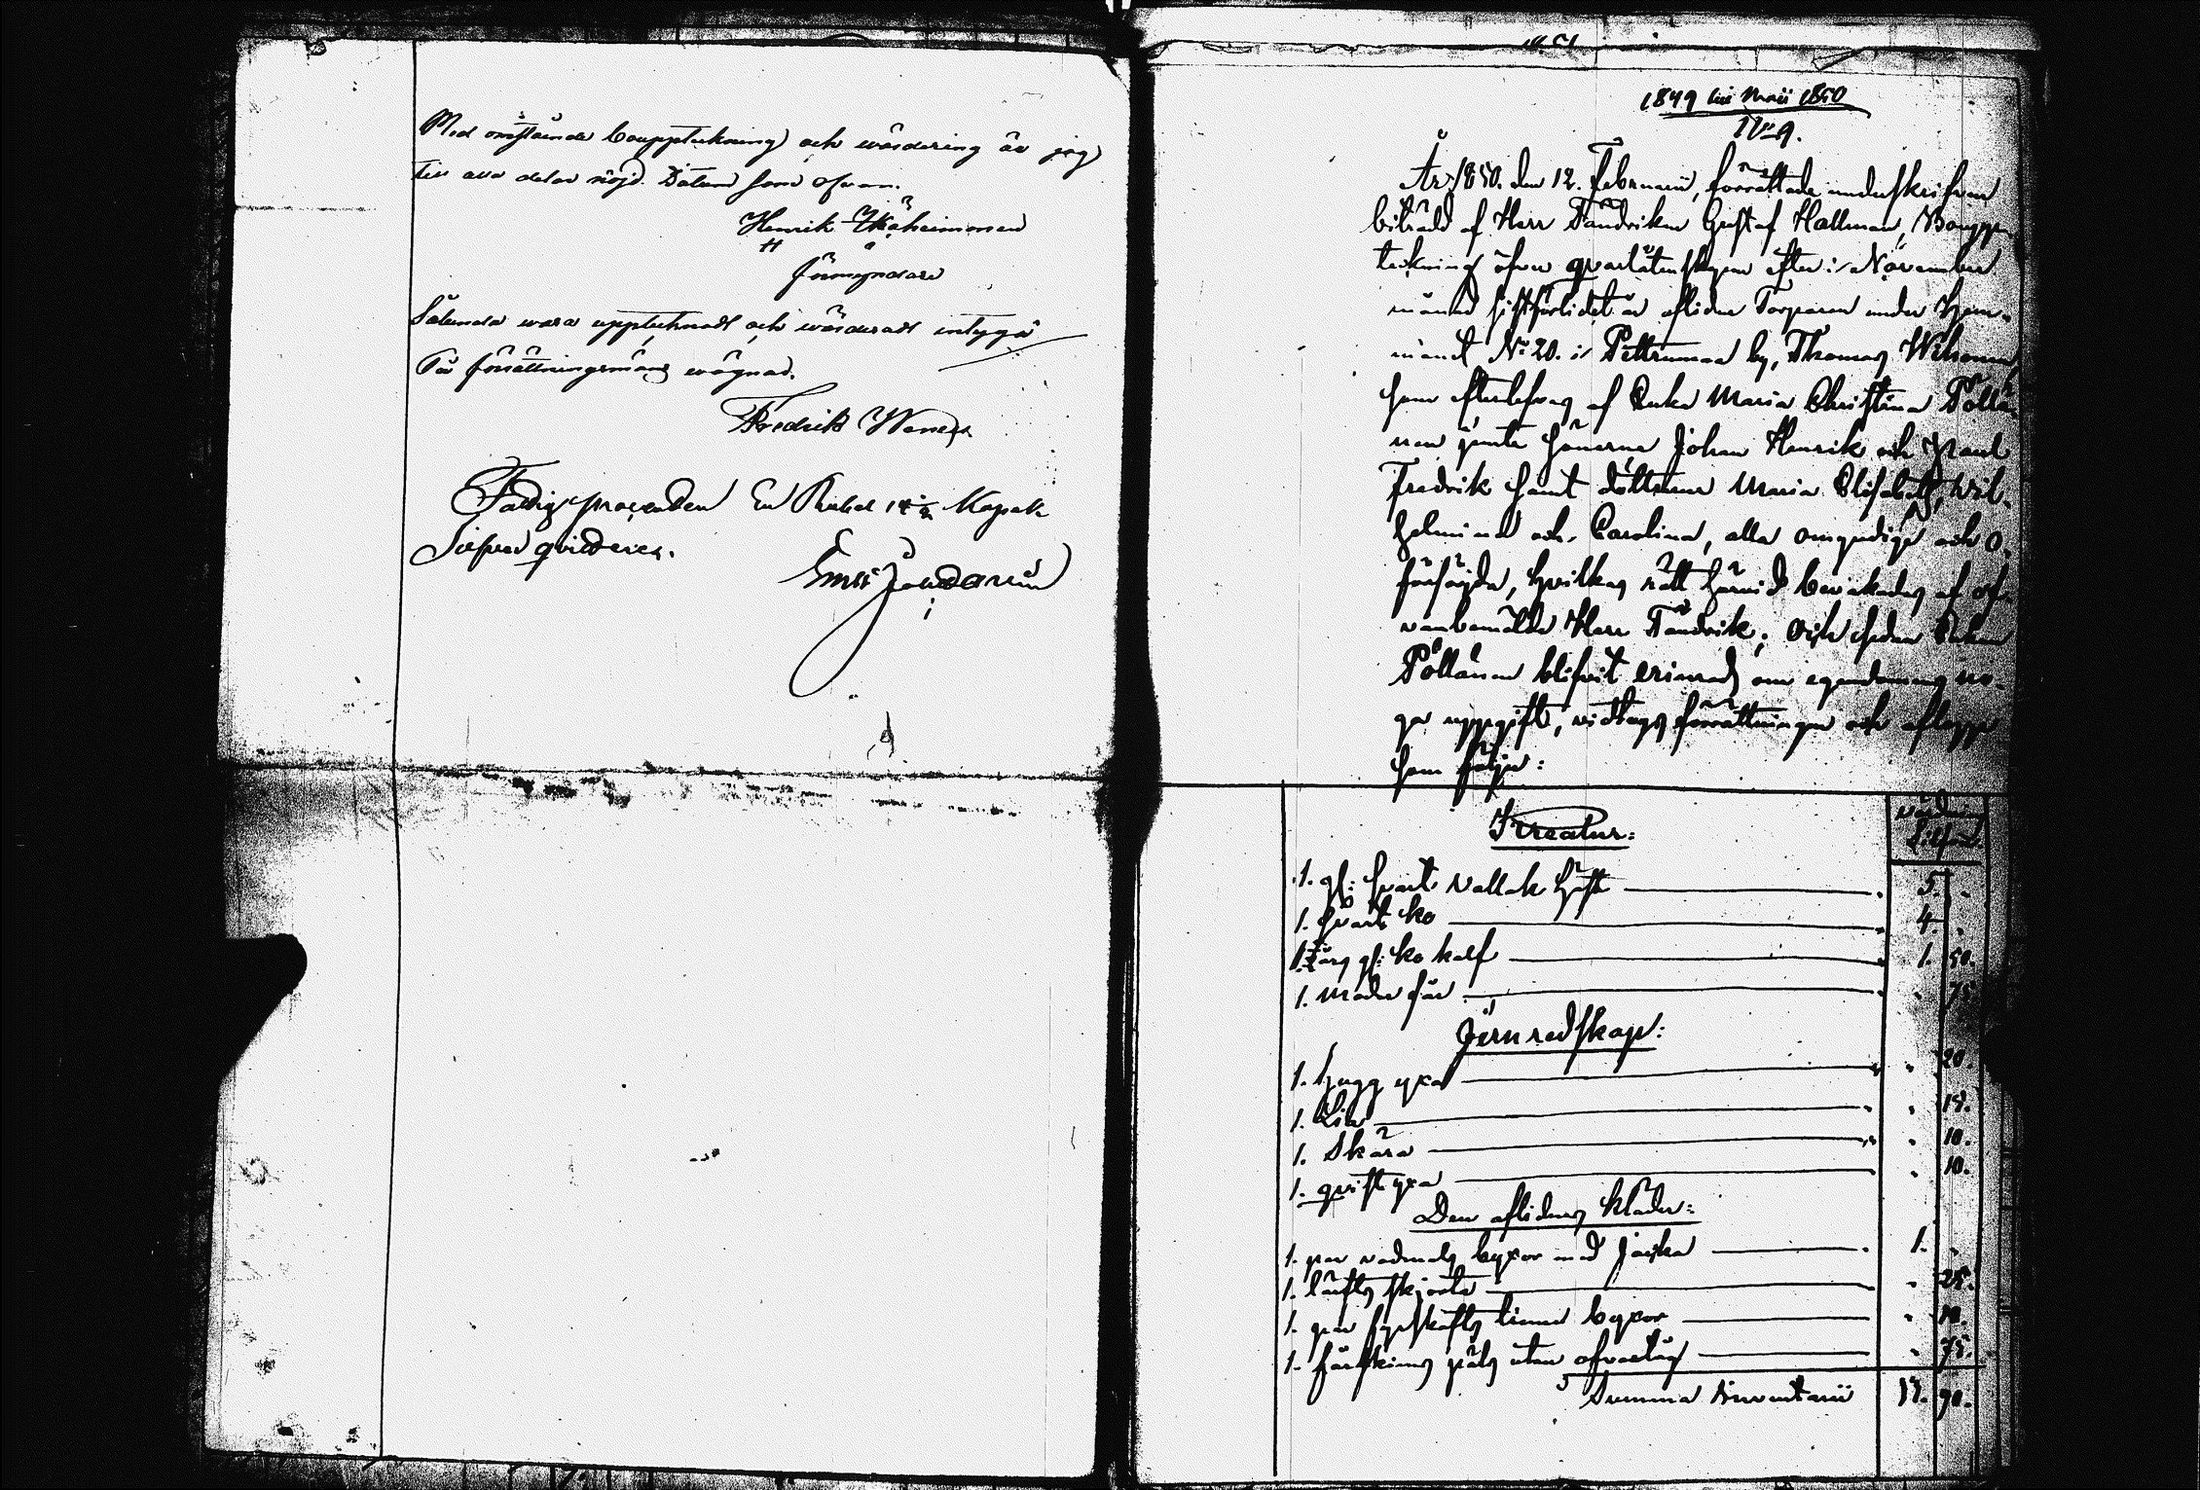 Med omstående bouppteckning och wärdering är jag
till alla delar nöjd. Datum som ofvan.
Henrik Ikäheimonen
förmyndare
Sålunda vara upptecknadt och wärderadt intyga
På förrättningsmäns wägnar.
Fredrik
Fattigprocenten En Rubel 14 1/2 Kopek
Silfver qvitteras.
Emil
1849 till Maii 1850
No 9.
År 1850. den 12. Februarii, förrättade underskrifven
biträdd af Herr Fändriken Gustaf Hallman, Boupp-
teckning öfver qvarlåtenskapen efter i November
månad sistförlidet år aflidne Torparen under Hem-
manet No 20. i by, Thomas
som efterlefves af Enka Maria Christina Pöllä-
nen jemte sönerne Johan Henrik och Paul
Fredrik samt döttrarne Maria Elisabeth, Wil-
helmina och Carolina, alla omyndige och o-
försörjda, hvilkas rätt härvid bevakades af of-
vanbemälte Herr Fändrik; Och sedan Enkan
Pöllänen blifvit erinrad om egendomens no-
ga uppgift, vidtogs förrättningen och aflopp
som följer:
Kreatur:
värdering
Silfver
1. gl: svart vallak häst 5. .
1. svart ko 4. .
1. års gl: ko kalf 1. 50.
1. moder får . 75.
Jernredskap:
1. hugg yxa . 20.
1. Lia . 15.
1. Skära . 10.
1. qvist yxa . 10.
Den aflidnes kläder:
1. par vadmals byxor med jacka 1. .
1. lärfts skjorta . 25.
1. par linne byxor . 10.
1. fårskinns päls utan ofvantyg . 75.
Summa Inventarii 13. 90.